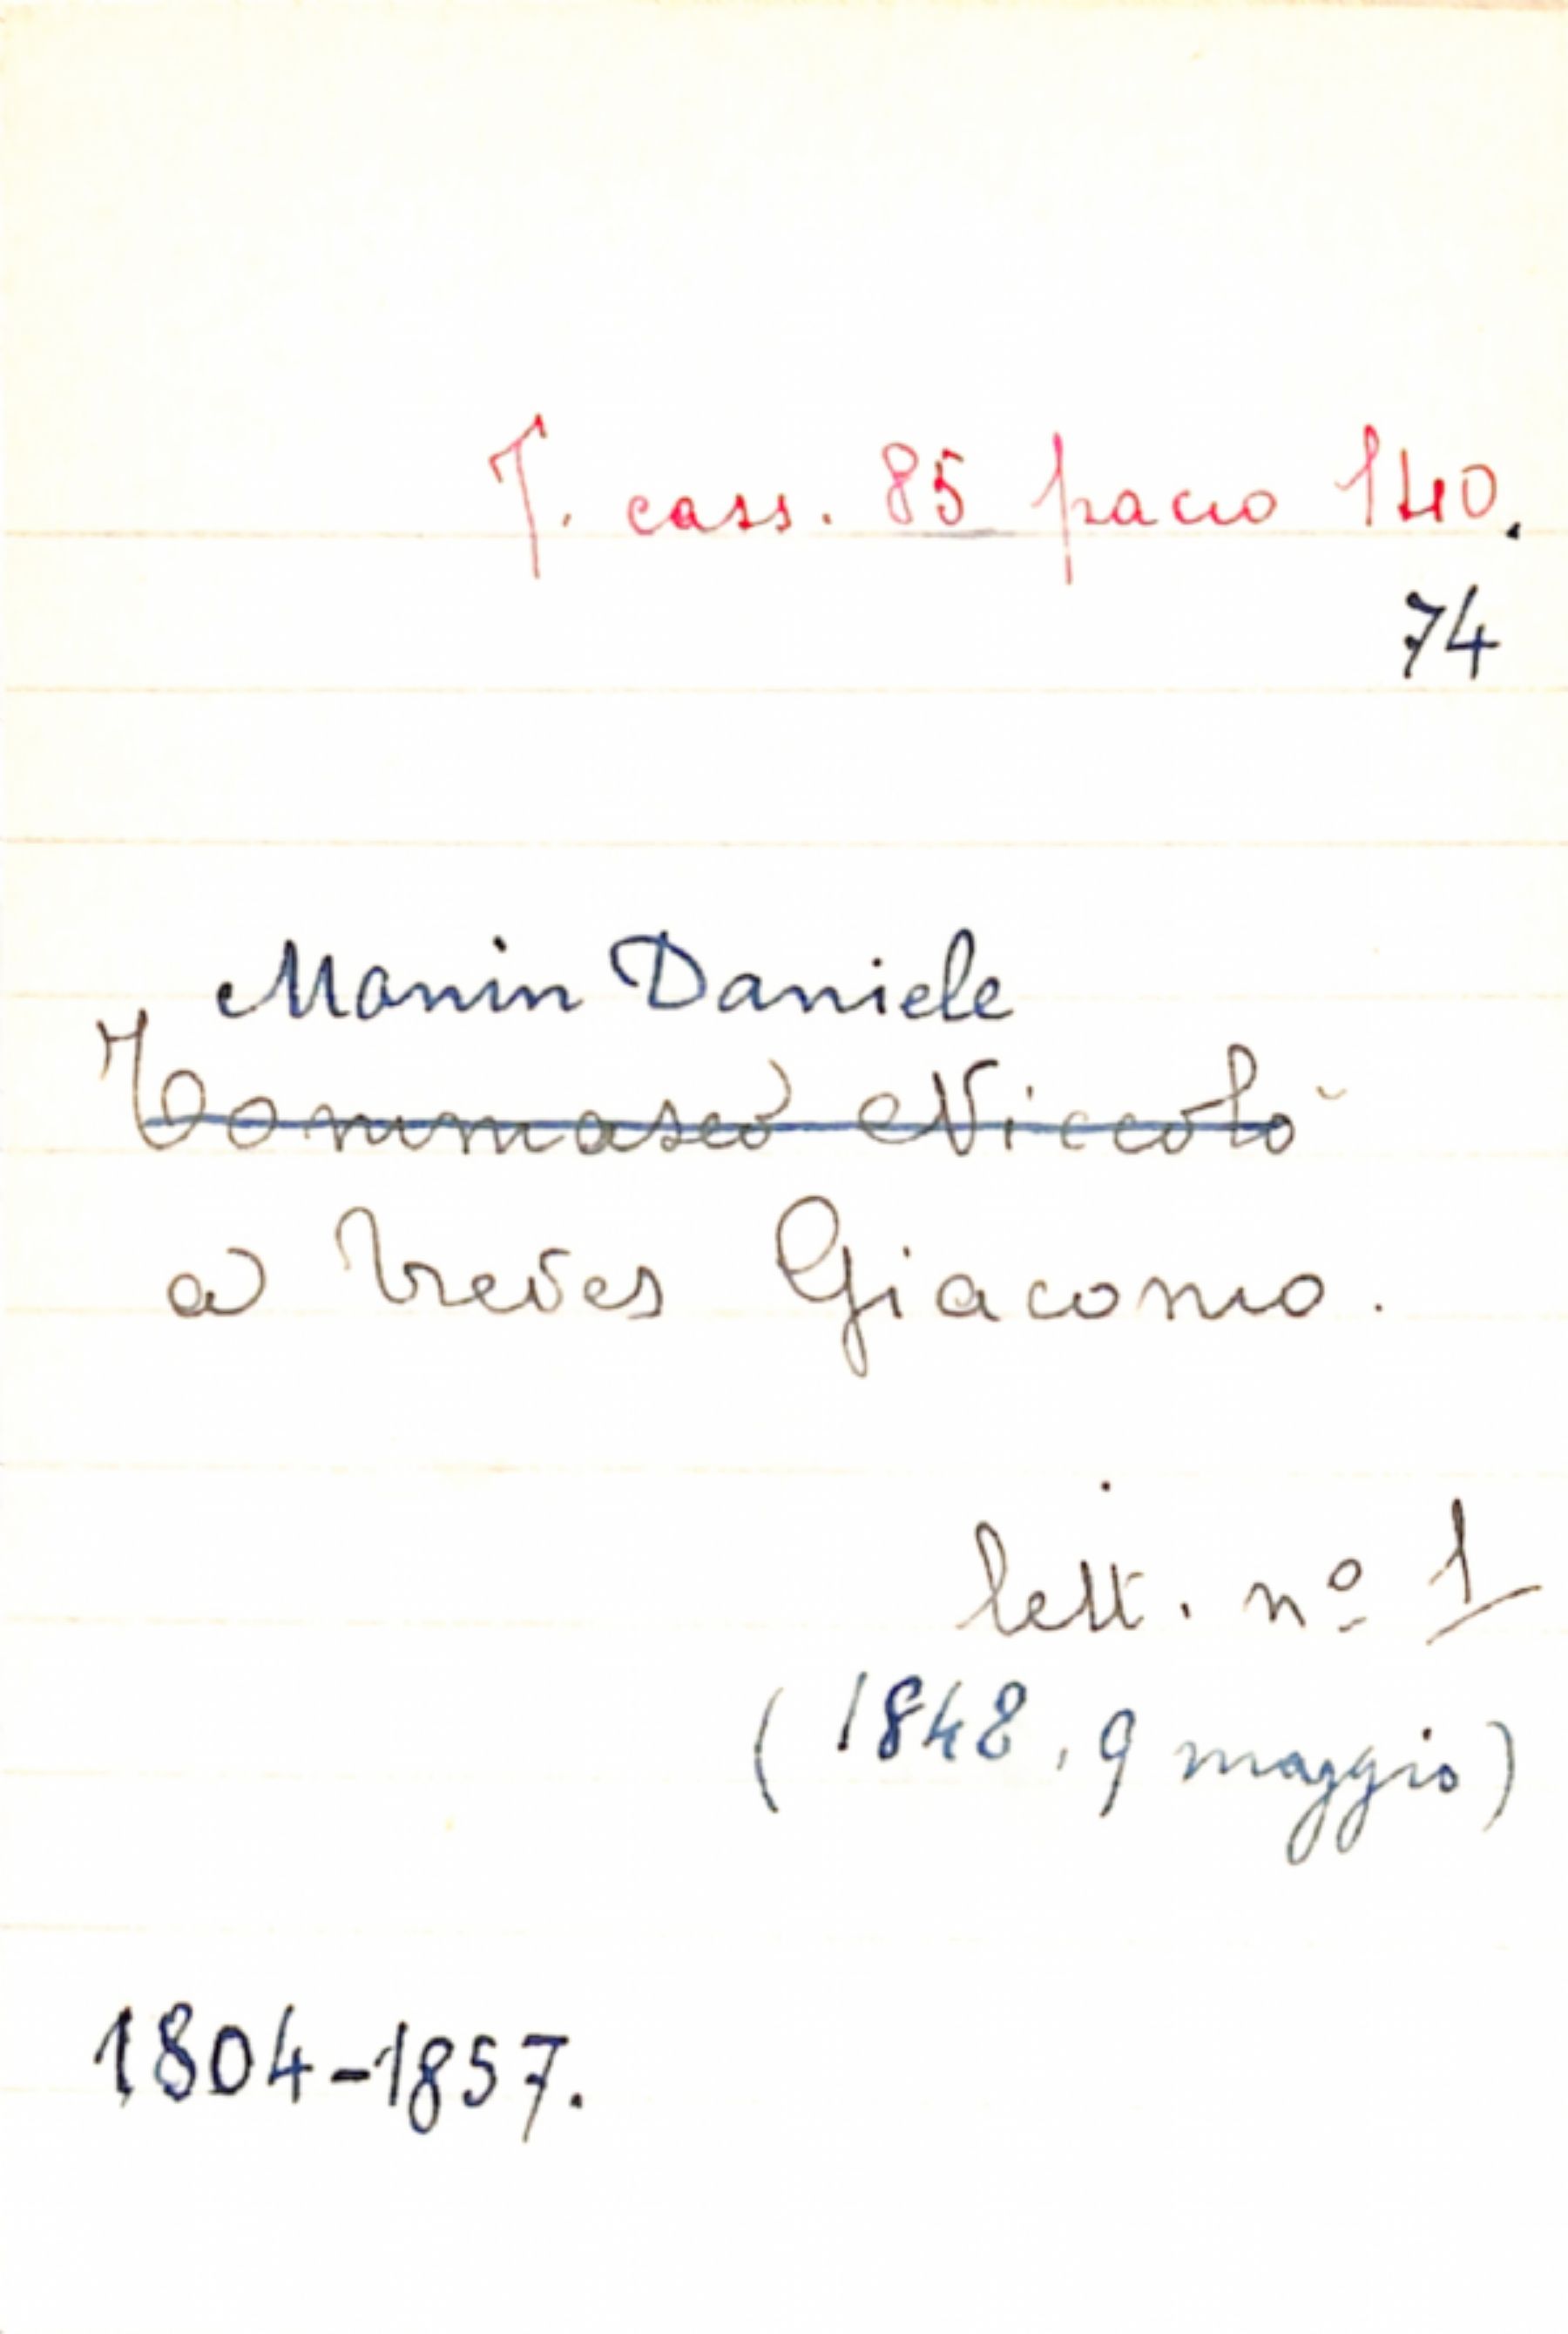 T. cass. 85 pacco 140.
74
Manin Daniele
Tommaseo Niccolò
a Treves Giacomo.
lett. nº 1
(1848, 9 maggio)
1804-1857.